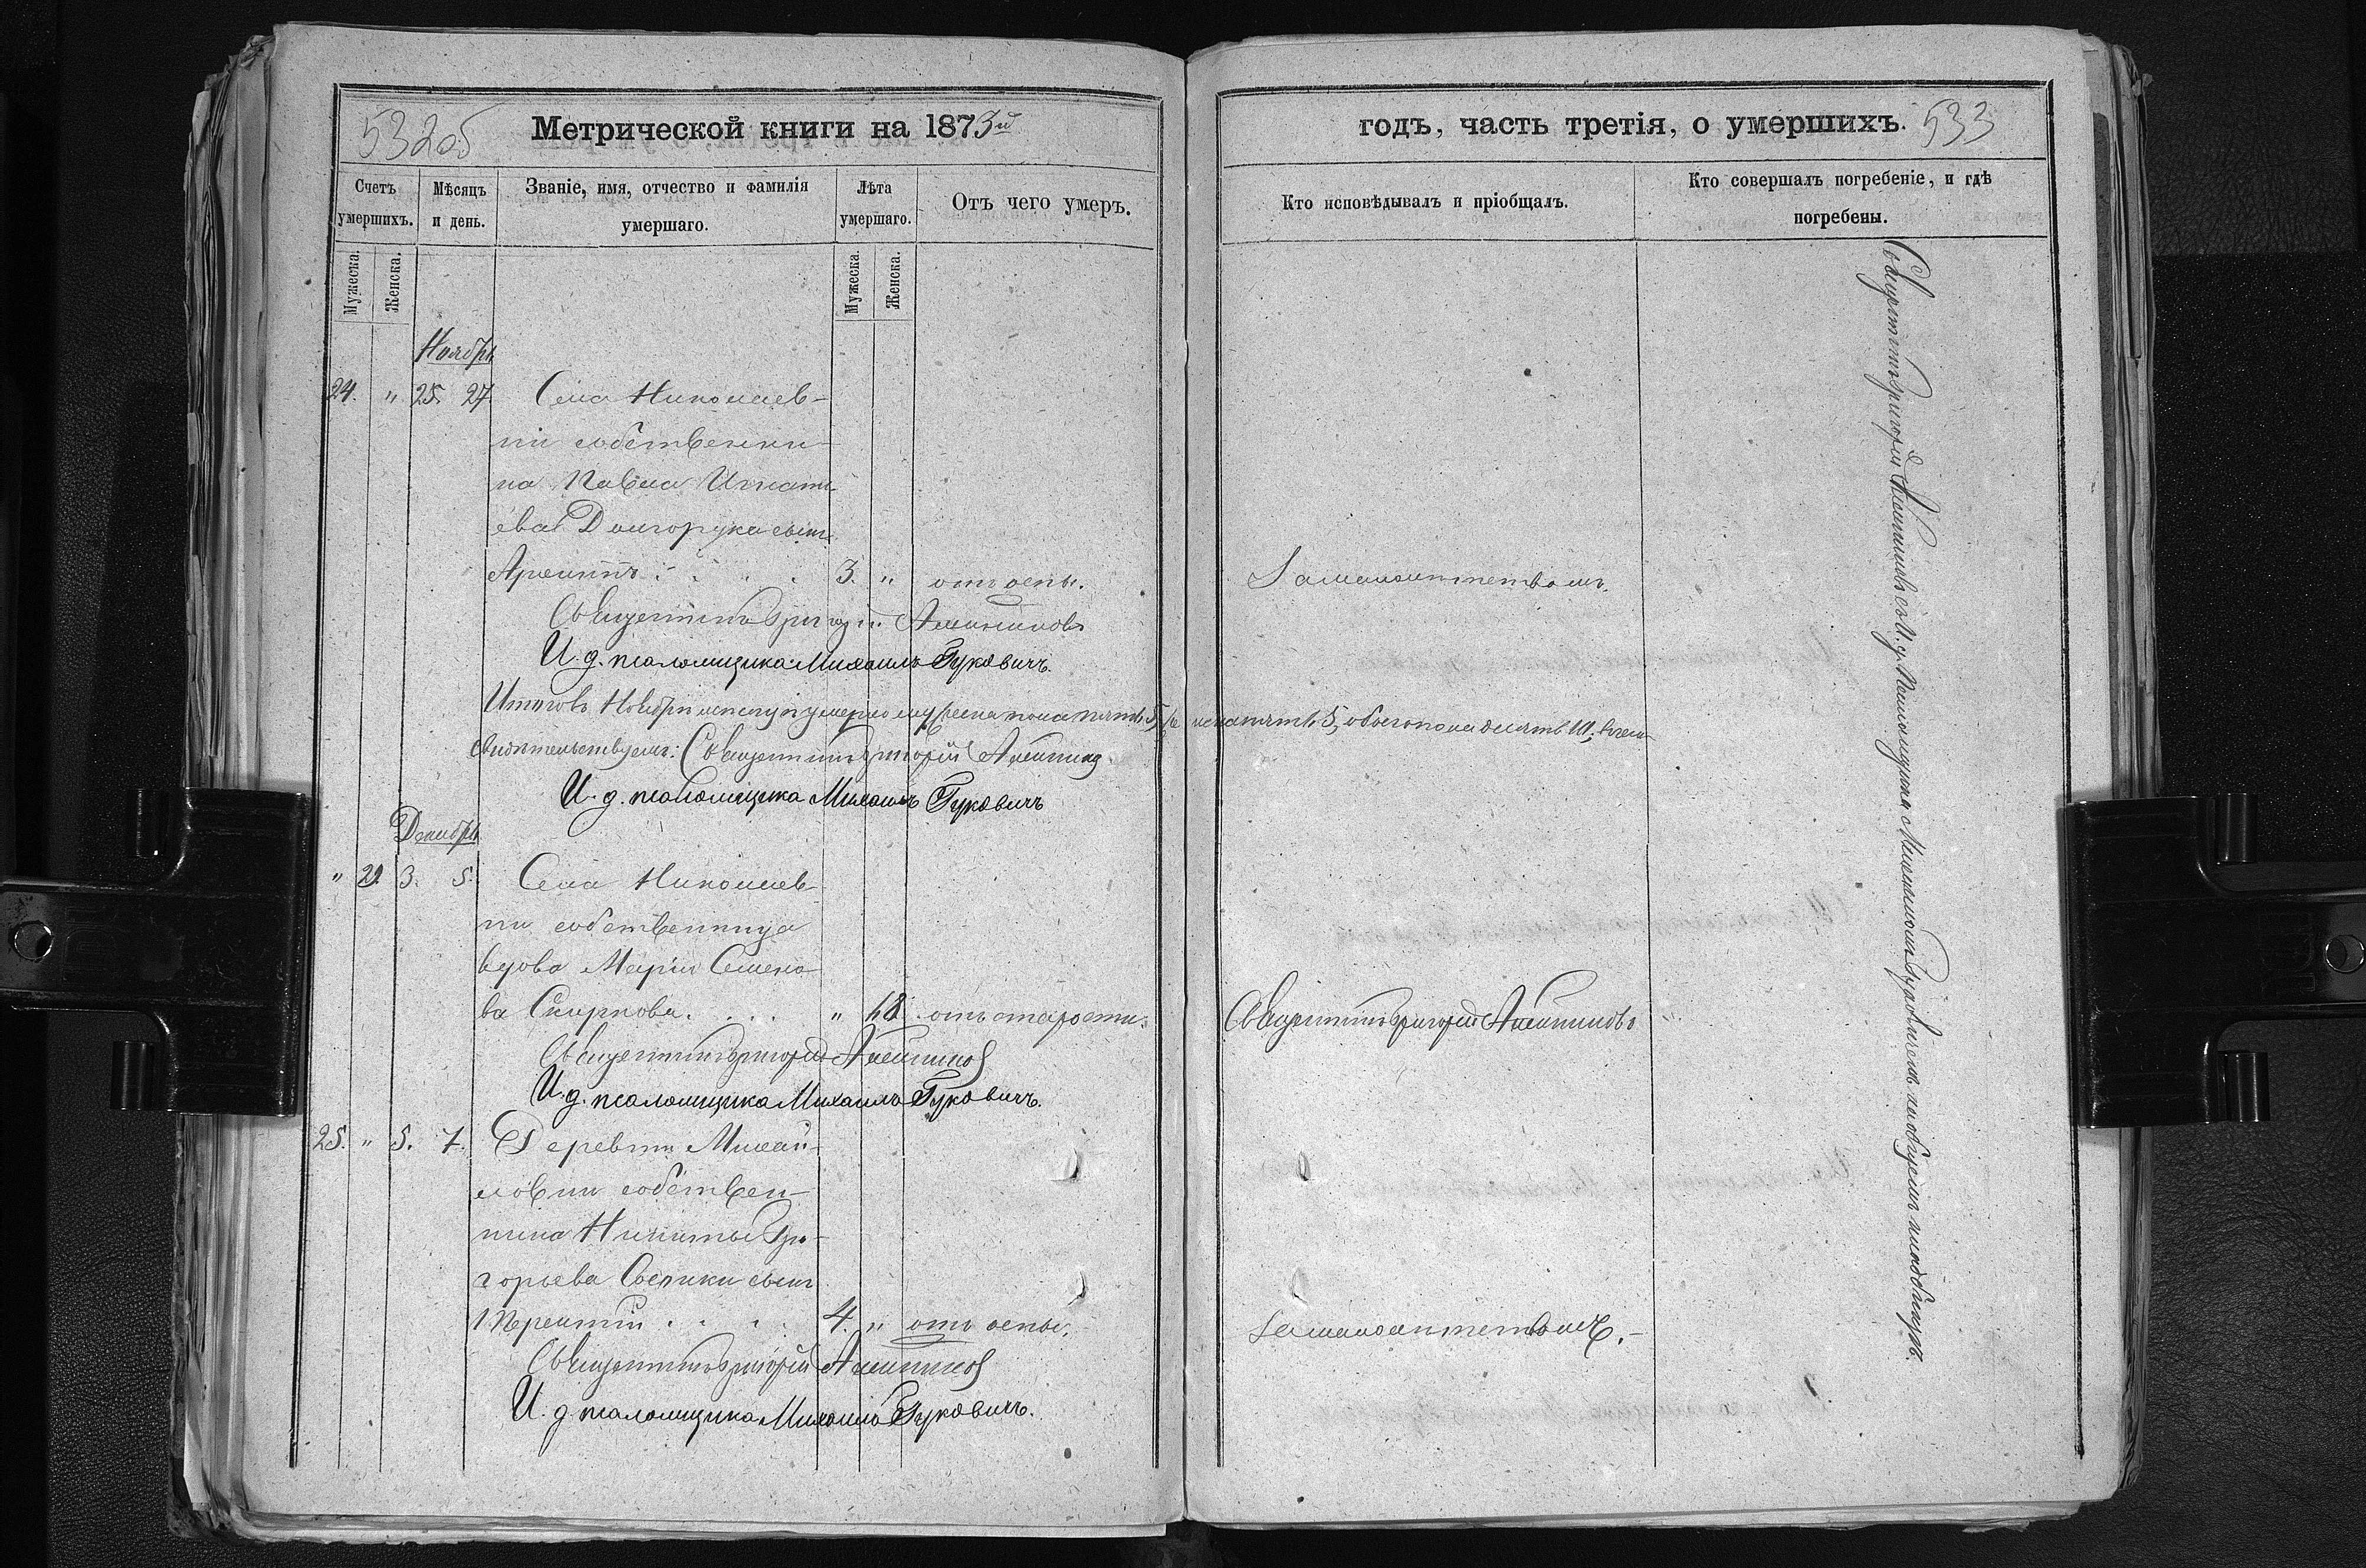 532об
Метрической книги на 1873й
Счетъ умершихъ.
Мѣсяцъ и день.
Званіе, имя, отчество и фамилія умершаго.
Лѣта умершаго.
Отъ чего умеръ.
Мужеска.
Женска.
Мужеска.
Женска.
Ноябрь
24. " 25. 27 Села Николаев-
ки собственни-
ка Павла Игнать-
ева Долгорука сынъ
3. " отъ оспы.
Священникъ Григорій
И. д. псаломщика Михаилъ Гуковичъ.
Итого въ Ноябрѣ мѣсяцѣ умерло мужеска пола пять 5, женска пять 5, обоего пола десять 10, въ чемъ
свидѣтельствуемъ: Священникъ Григорій
И. д. псаломщика Михаилъ Гуковичъ
Декабрь
" 21. 3. 5. Села Николаев-
ки собственница
вдова Марія Семено-
ва " отъ старости.
Священникъ Григорій
И. д. псаломщика Михаилъ Гуковичъ.
25. " 5. 7. Деревни Михай-
ловки собствен-
ника Никиты Гри-
горьева сынъ
4. " отъ оспы.
Священникъ Григорій
И. д. псаломщика Михаилъ Гуковичъ.
годъ, часть третія, о умершихъ.
533
Кто исповѣдывалъ и пріобщалъ.
Кто совершалъ погребеніе, и гдѣ погребены.
За малолѣтствомъ.
Священникъ Григорій
За малолѣтствомъ.
Священникъ Григорій съ И. д. Псаломщика Михаиломъ Гуковичемъ на кладбищѣ.